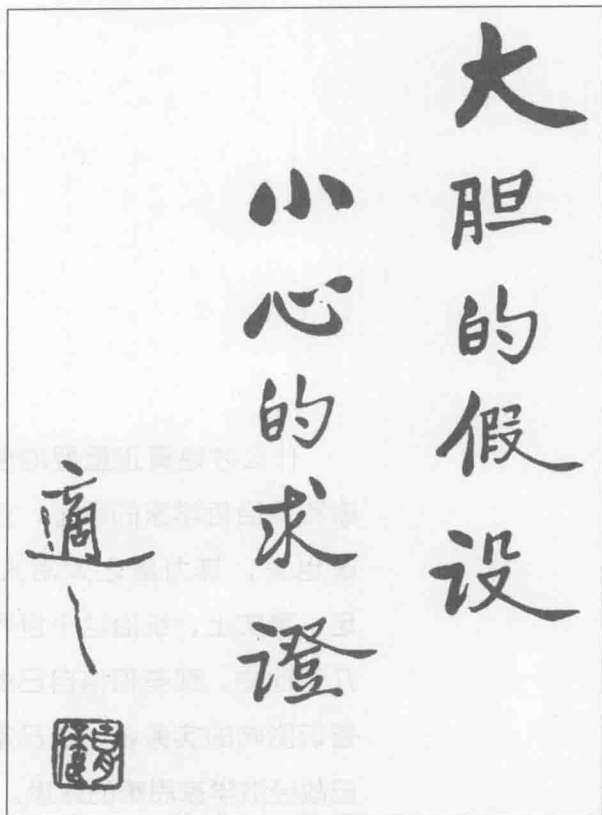 大胆的假设
小心的求證
適